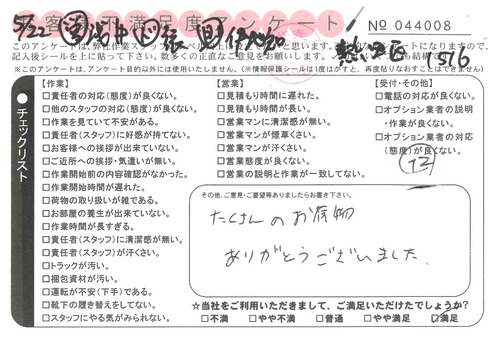 お客様満足度アンケート
№ 044008
5/22
熱田区 1516
このアンケートは、弊社作業スタッフ
記入後シールを上に貼って下さい。数多くの正直なご意見をお願い
(※このアンケートは、アンケート目的以外には使用いたしません。(※情報保護シールは1度はがすと、再度貼りなおすことはできません)
チェックリスト
【作業】
□責任者の対応(態度)が良くない。
□他のスタッフの対応(態度)が良くない。
□作業を見ていて不安がある。
□責任者(スタッフ)に好感が持てない。
□お客様への挨拶が出来ていない。
□ご近所への挨拶・気遣いが無い。
□作業開始前の内容確認がなかった。
□作業開始時間が遅れた。
□荷物の取り扱いが雑である。
□お部屋の養生が出来ていない。
□作業時間が長すぎる。
□責任者(スタッフ)に清潔感が無い。
□責任者(スタッフ)が汗くさい。
□トラックが汚い。
□梱包資材が汚い。
□運転が不安(下手)である。
□靴下の履き替えをしてない。
□スタッフにやる気がみられない。
【営業】
□見積もり時間に遅れた。
□見積もり時間が長い。
□営業マンに清潔感が無い。
□営業マンが煙草くさい。
□営業マンが汗くさい。
□営業態度が良くない。
□営業の説明と作業が一致してない。
【受付・その他】
□電話の対応が良くない。
□オプション業者の説明
・作業が良くない。
□オプション業者の対応
(態度)が良くない。
その他、ご意見・ご要望等ありましたらお書き下さい。
たくさんのお荷物
ありがとうございました。
☆当社をご利用いただきまして、ご満足いただけたでしょうか?
□不満 □やや不満 □普通 □やや満足 □満足